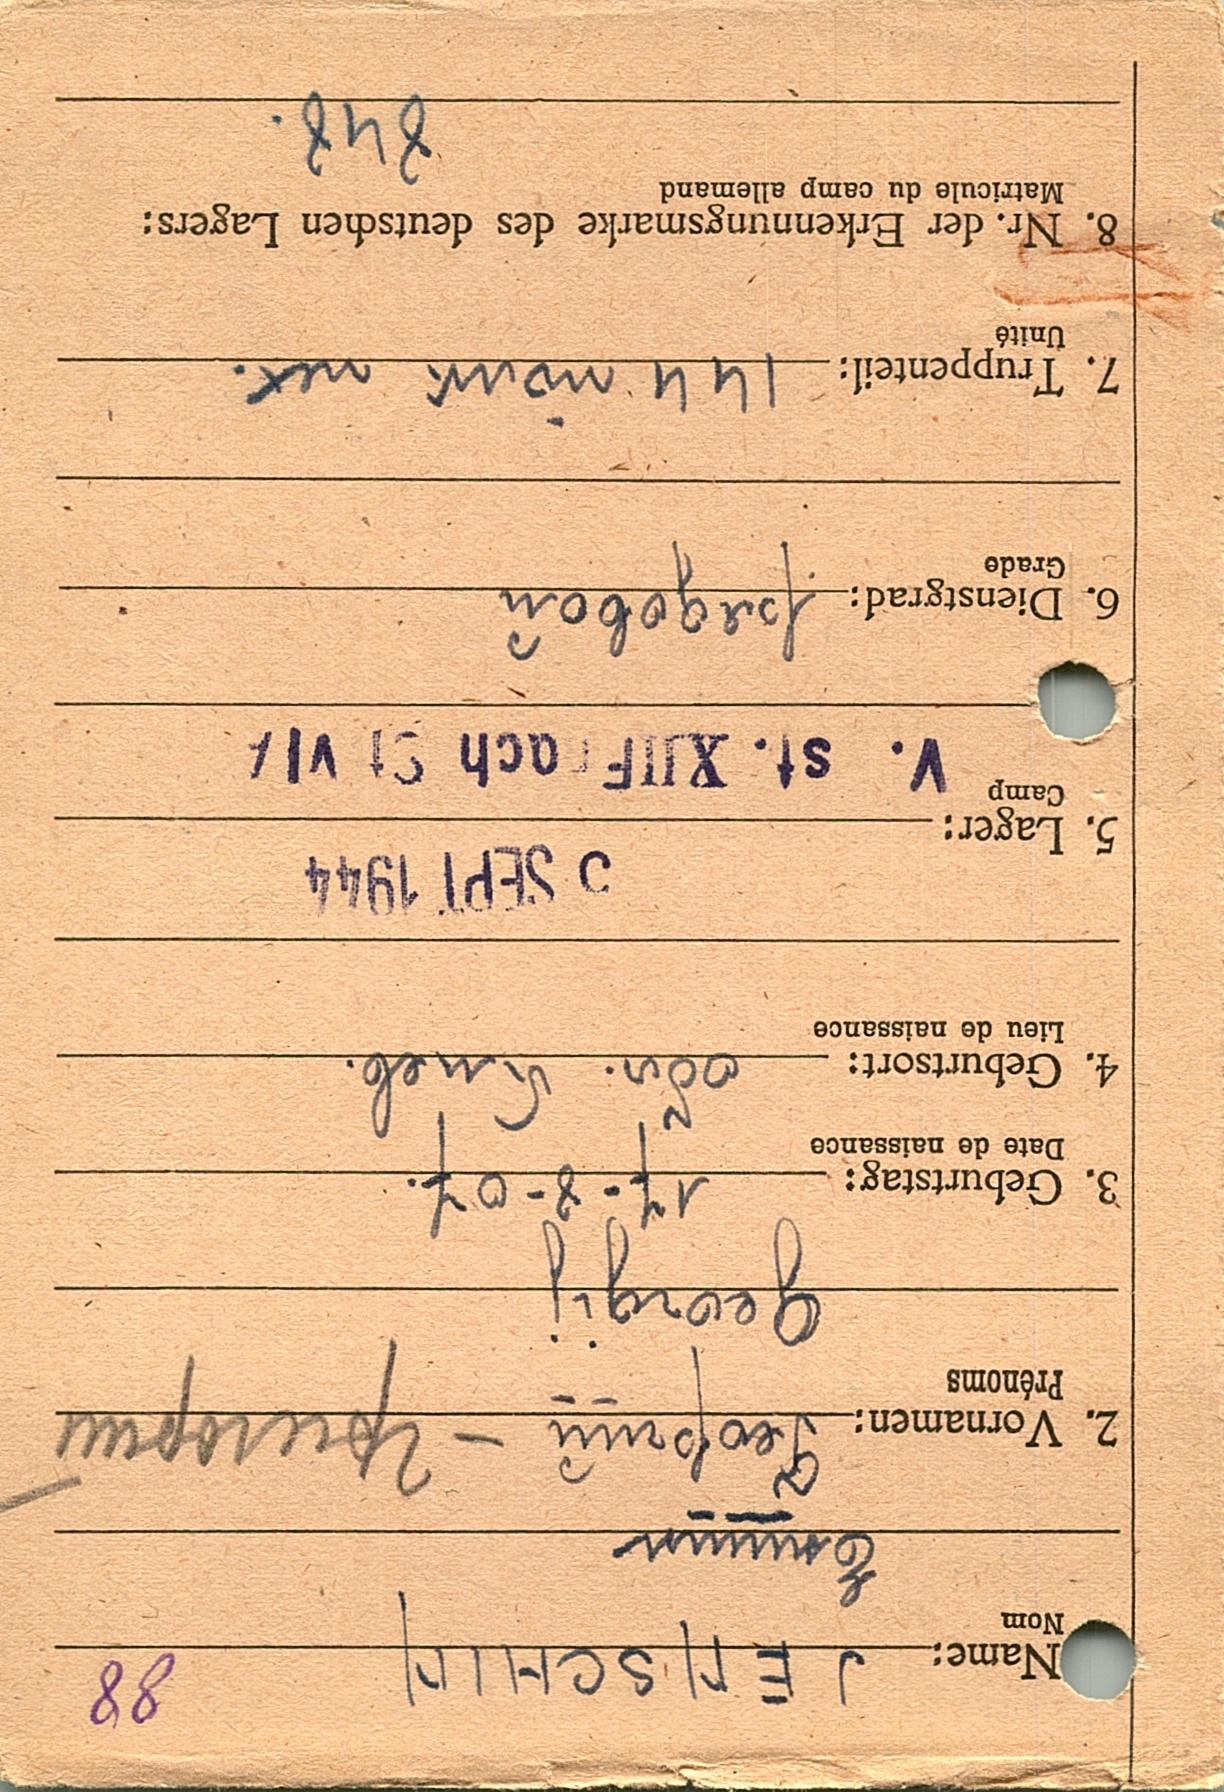 88
Name: JENSCHIN
Nom
Еншин
2. Vornamen: Георгий – Григорий
Prénoms
Georgij
3. Geburtstag: 17-8-07.
Date de naissance
4. Geburtsort: обл. Киев.
Lieu de naissance
SEPT 1944
5. Lager: V. st. XIIF nach St VI/
Camp
6. Dienstgrad: редовой
Grade
7. Truppenteil: 144
Unité
8. Nr. der Erkennungsmarke des deutschen Lagers:
Matricule du camp allemand
848.